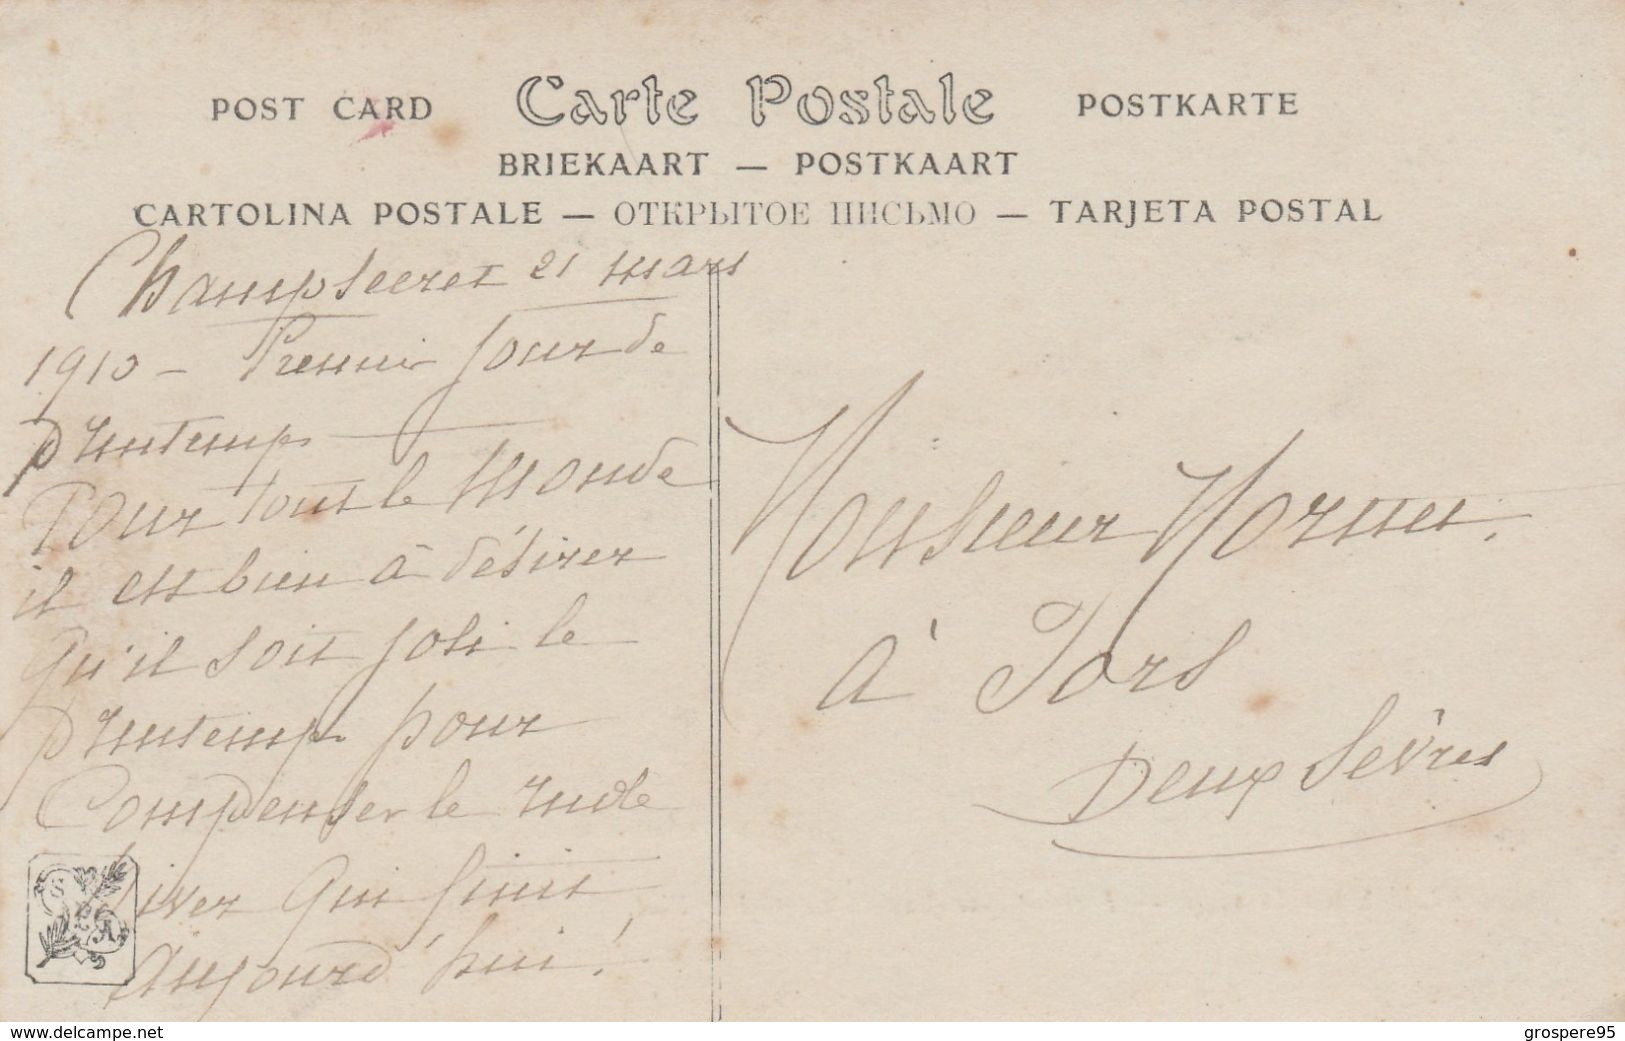 POST CARD Carte Postale POSTKARTE
BRIEKAART — POSTKAART
CARTOLINA POSTALE — ОТКРЫТОЕ ПИСЬМО — TARJETA POSTAL
Champsecret 21 mars
1910 - Premier jour de
printemps —
Pour tout le monde
il est bien à désirer
Qu'il soit joli le
printemps pour
Compenser le rude
hiver qui finit
Aujourd'hui !
Monsieur
à Pers
Deux Sèvres
www.delcampe.net
grospere95